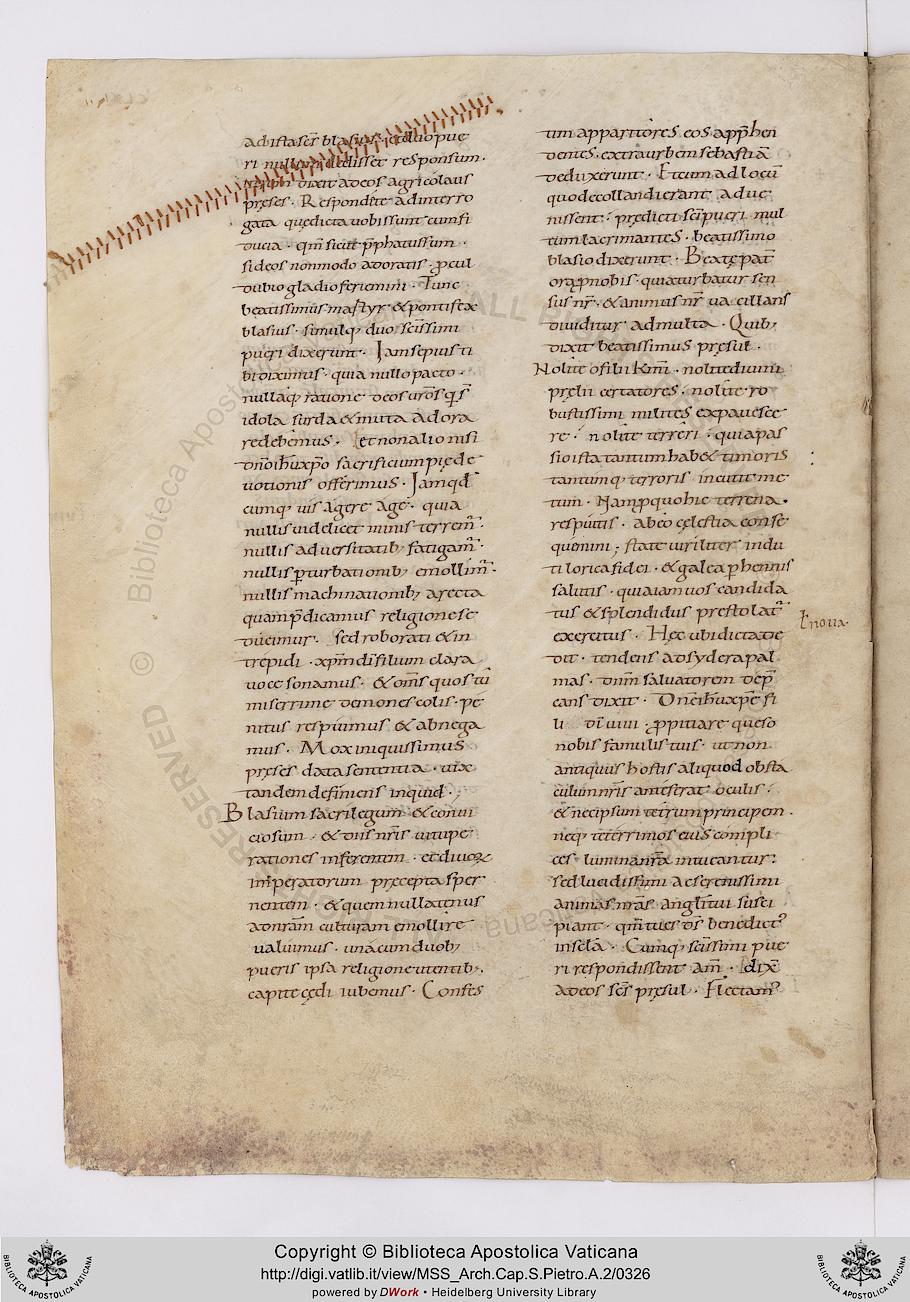 ad ista scs̄ blasius et duo pue
ri nullum dedissent responsum.
dixit ad eos agricolaus
pręses. Respondete ad interro
gata quę dicta uobis sunt cum fi
ducia. qm̄ sicut p̄phatus sum.
si deos non modo adoratis. procul
dubio gladio feriemini. Tunc
beatissimus martyr & pontifex
blasius. simulq; duo sc̄issimi
pueri dixerunt. Iam sepius ti
bi diximus. quia nullo pacto.
nullaq; ratione deos uros̄
idola surda & muta adora
re debemus. et non alio nisi
dn̄o ihū xp̄o sacrificium pię de
uotionis offerimus. Iam qd̄
cumq; uis agere age. quia
nullis uidelicet minis terrem̄.
nullis aduersitatib; fatigam̄.
nullis p̄turbationib; emollim̄.
nullis machinationib; a recta
quam p̄dicamus religione se
ducimur. sed roborati & in
trepidi. xp̄m dī filium clara
uoce sonamus. & om̄s quos tū
miserrime demones colis. pe
nitus respuimus & abnega
mus. Mox iniquissimus
pręses data sententia. uix
tandem definiens inquid.;
Blasium sacrilegum & conui
ciosum. & diis nr̄is uitupe
rationes inferentem. et diuorꝝ
imperatorum pręcepta sper
nentem. & quem nullatenus
ad nram̄ culturam emollire
ualuimus. una cum duob;
pueris ipsa religione utentib;.
capite cędi iubemus. Confes
tim apparitores eos app̄hen
dentes. extra urbem sebastiā
deduxerunt. Et cum ad locū
quo decollandi erant adue
nissent. prędicti sc̄i pueri mul
tum lacrimantes. beatissimo
blasio dixerunt. Beatę pat̄
ora p nobis. quia turbatur sen
sus nr̄. & animus nr̄ uacillans
diuiditur ad multa. Quib;
dixit beatissimus pręsul.
Nolite o filii km̄i. nolite diuini
prelii certatores. nolite ro
bustissimi milites expauesce
re. nolite terreri. quia pas
sio ista tantum hab& timoris
tantumq; terroris incutit me
tum. Nam p quo hic terrena.
respuitis. ab eo cęlestia conse
quemini; state uiriliter indu
ti lorica fidei. & galea p̄hennis
salutis. quia iam uos candida
tus & splendidus prestolat̄
exercitus. Hec ubi dicta de
dit. tendens ad sydera pal
mas. dnm̄ saluatorem dep̄
cans dixit. Dn̄e ihū xp̄e fi
li dī uiui. propitiare queso
nobis famulis tuis. ut non
antiquus hostis aliquod obsta
culum nr̄is anteferat oculis.
& nec ipsum tetrum principem.
neq; teterrimos eius compli
ces luminа nr̄a intueantur.
sed lucidissimi ac serenissimi
animas nr̄as angli tui susci
piant. qm̄ tu es ds̄ benedictꝰ
in sc̄la. Cumq; sc̄issimi pue
ri respondissent am̄. dix̄
ad eos sc̄s pręsul. Flectamꝰ
ł noua.
© Biblioteca Apostolica Vaticana ALL RIGHTS RESERVED
Copyright © Biblioteca Apostolica Vaticana
http://digi.vatlib.it/view/MSS_Arch.Cap.S.Pietro.A.2/0326
powered by DWork • Heidelberg University Library
BIBLIOTECA APOSTOLICA VATICANA
BIBLIOTECA APOSTOLICA VATICANA